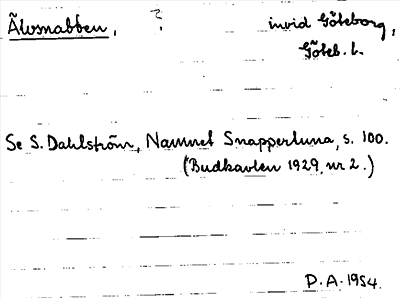 Älvsnabben, ? invid Göteborg,
Göteb. l.
Se S. Dahlström, Namnet Snappertuna, s. 100.
(Budkavlen 1929, nr 2.)
D. A. 1954.